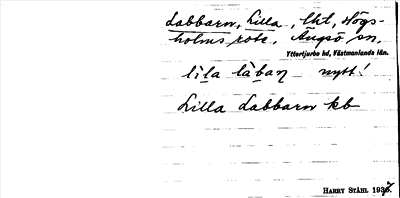 Labbarn, Lilla, lht, Högs-
holms rote, Ängsö sn,
Yttertjurbo hd, Västmanlands län.
li̇̀la làban nytt!
Lilla Labbarn kb
HARRY STÅHL 1937